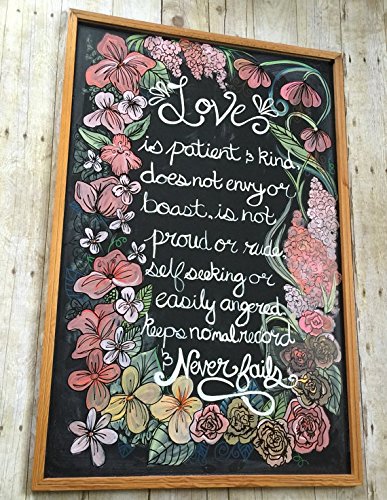 Love
is patient & kind,
does not envy or
boast, is not
proud or rude,
self seeking or
easily angered,
keeps no mal record
& Never fails.